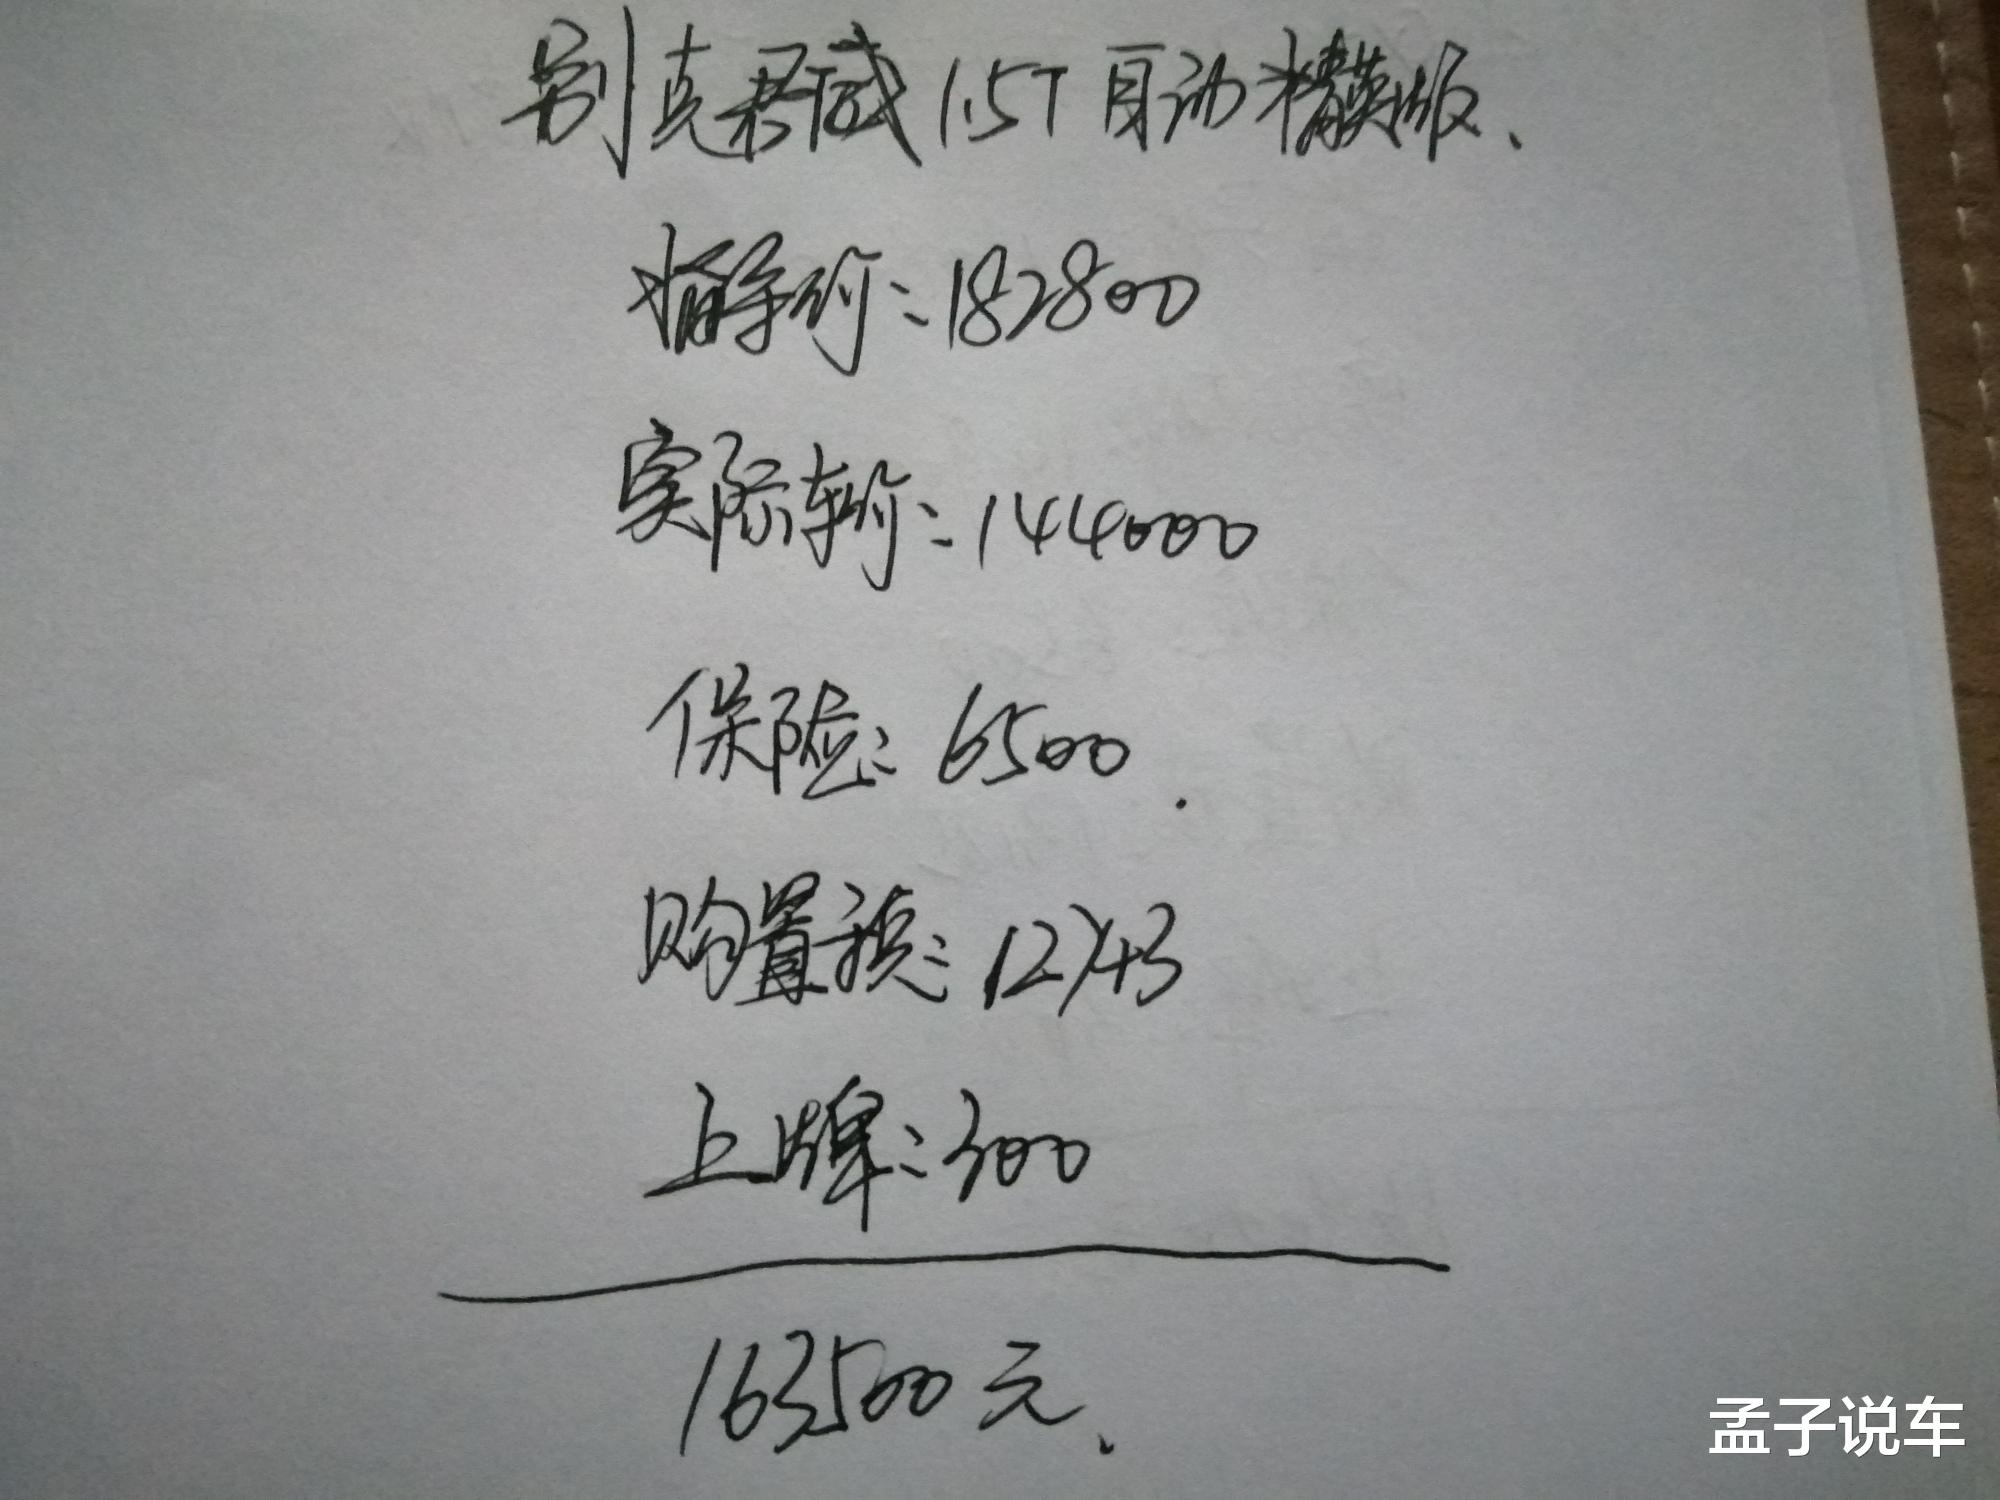 别克君威1.5T自动精英版、
指导价：182800
实际车价：144000
保险：6500.
购置税：12743
上牌：300
163500元.
孟子说车